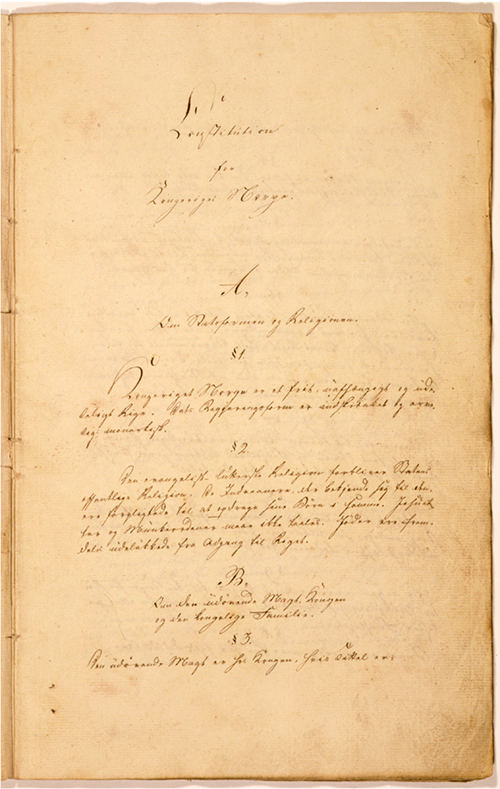 Constitution
for
Kongeriget Norge.
A.
Om Statsformen og Religionen.
§ 1.
Kongeriget Norge er et frit, uafhængigt og ude-
leligt Rige. Dets Regjeringsform er indskrænket og arve-
lig monarkisk.
§ 2.
Den evangelisk-lutherske Religion forbliver Statens
offentlige Religion. De Indvaanere, der bekjende sig til den,
ere forpligtede til at opdrage sine Børn i samme. Jesuit-
ter og Munkeordener maae ikke taales. Jøder ere frem-
deles udelukkede fra Adgang til Riget.
B.
Om den udøvende Magt, Kongen
og den kongelige Familie.
§ 3.
Den udøvende Magt er hos Kongen, hvis Titel er: